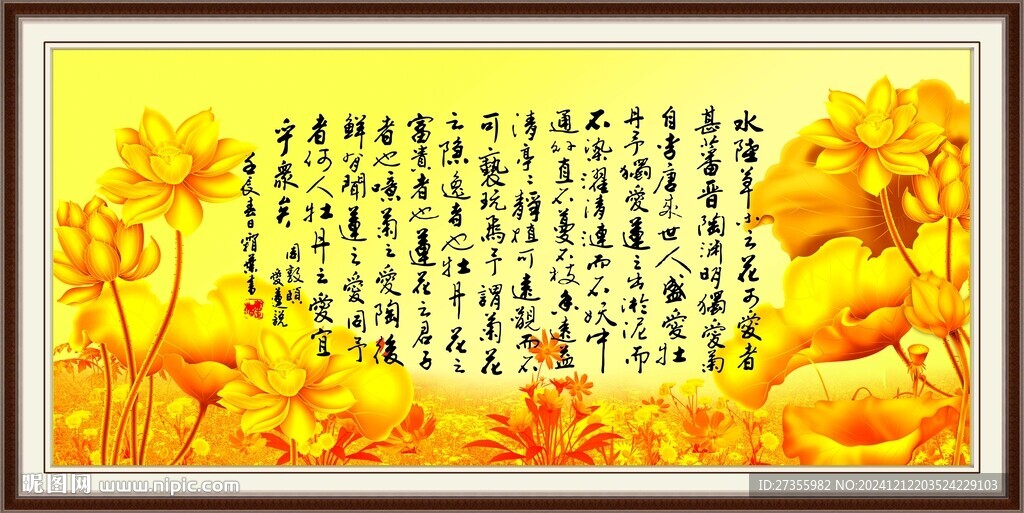 水陸草木之花可愛者
甚蕃晋陶渊明獨愛菊
自李唐来世人盛愛牡
丹予獨愛蓮之出淤泥而
不染濯清漣而不妖中
通外直不蔓不枝香遠益
清亭々静植可遠觀而不
可褻玩焉予謂菊花
之隐逸者也牡丹花之
富貴者也蓮花之君子
者也噫菊之愛陶後
鮮有聞蓮之愛同予
者何人牡丹之愛宜
乎衆矣
周敦頤
愛蓮説
壬辰春日 書
昵图网 www.nipic.com
ID:27355982 NO:20241212203524229103